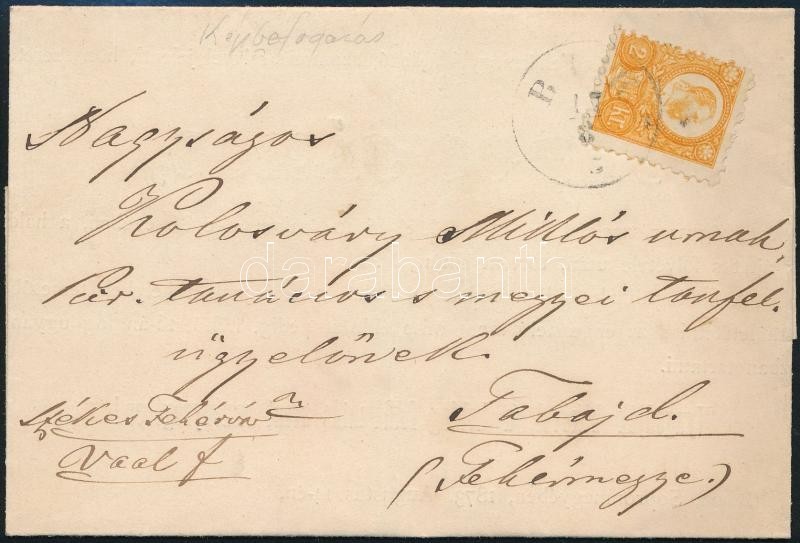 Képbefogadás
2
kr
B
Nagyságos
Kolosváry Miklós urnak,
Kir. tanácsos s megyei tanfel-
ügyelőnek
darabanth
Székes Fehérvár
Vaal f
Tabajd.
(Fehérmegye.)
1873